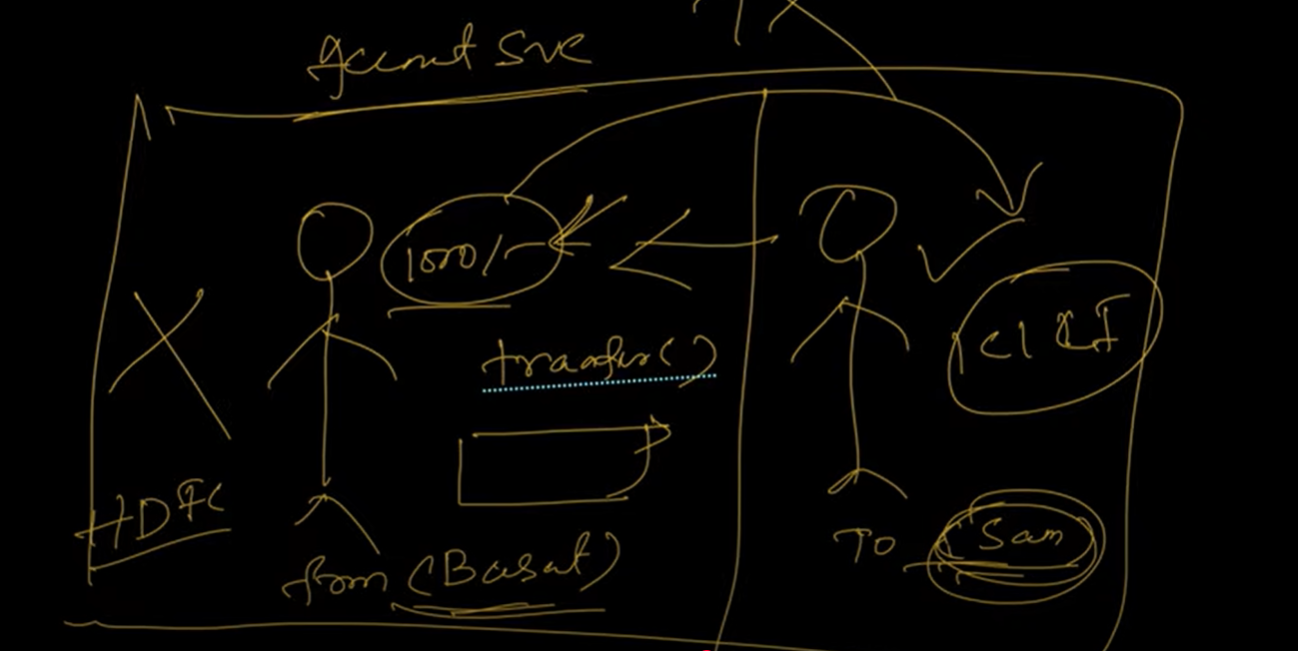 Svc
1000/-
transfer()
ICICI
HDFC
from (Basat)
To (Sam)